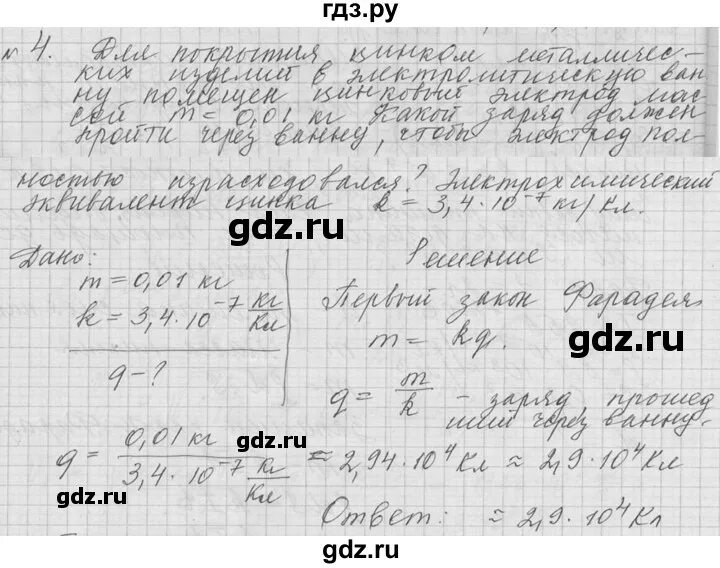 гдз.ру
№ 4. Для покрытия цинком металличес-
ких изделий в электролитическую ван-
ну помещен цинковый электрод мас-
сой m = 0,01 кг Какой заряд должен
пройти через ванну, чтобы электрод пол-
ностью израсходовался? Электрохимический
эквивалент цинка k = 3,4·10⁻⁷ кг/Кл.
Дано:
m = 0,01 кг
k = 3,4·10⁻⁷ кг/Кл
q - ?
Решение
Первый закон Фарадея
m = kq.
q = m/k - заряд прошед
ший через ванну.
q = 0,01 кг / 3,4·10⁻⁷ кг/Кл ≈ 2,94·10⁴ Кл ≈ 2,9·10⁴ Кл
Ответ: ≈ 2,9·10⁴ Кл
gdz.ru
gdz.ru
gdz.ru
gdz.ru
gdz.ru
gdz.ru